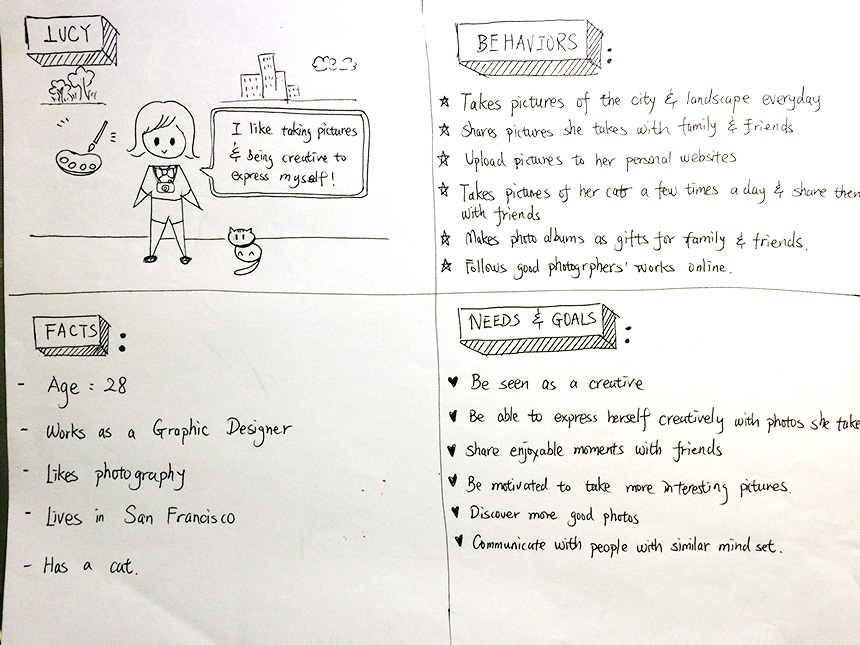 LUCY
I like taking pictures
& being creative to
express myself!
BEHAVIORS :
☆ Takes pictures of the city & landscape everyday
☆ Shares pictures she takes with family & friends
☆ Upload pictures to her personal websites
☆ Takes pictures of her cat a few times a day & share them
with friends
☆ Makes photo albums as gifts for family & friends.
☆ Follows good photogrphers' works online.
FACTS :
- Age : 28
- Works as a Graphic Designer
- Likes photography
- Lives in San Francisco
- Has a cat.
NEEDS & GOALS :
♥ Be seen as a creative
♥ Be able to express herself creatively with photos she take
♥ share enjoyable moments with friends
♥ Be motivated to take more interesting pitures.
♥ Discover more good photos
♥ Communicate with people with similar mind set.